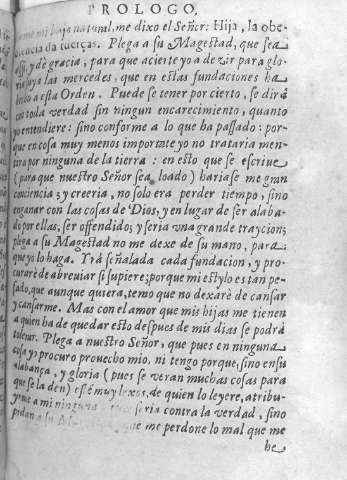 PROLOGO.
me mi bajo natural, me dixo el Señor: Hija, la obe-
diencia da fuerças. Plega a su Magestad, que sea
assi, y de gracia, para que acierte yo a dezir para glo-
ria suya las mercedes, que en estas fundaciones ha
hecho a esta Orden. Puede se tener por cierto, se dirà
con toda verdad sin ningun encarecimiento, quanto
yo entendiere: sino conforme a lo que ha passado: por-
que en cosa muy menos importante yo no trataria men-
tira por ninguna de la tierra: en esto que se escriue
(para que nuestro Señor sea loado) hariase me gran
conciencia; y creeria, no solo era perder tiempo, sino
enganar con las cosas de Dios, y en lugar de ser alaba-
do por ellas, ser offendido; y seria vna grande traycion;
plega a su Magestad no me dexe de su mano, para
que yo la haga. Yrà señalada cada fundacion, y pro-
curarè de abreuiar si supiere; porque mi estylo es tan pe-
sado, que aunque quiera, temo que no dexarè de cansar
y cansarme. Mas con el amor que mis hijas me tienen
a quien ha de quedar esto despues de mis dias se podrà
tolerar. Plega a nuestro Señor, que pues en ninguna
cosa yo procuro prouecho mio, ni tengo porque, sino en su
alabança, y gloria (pues se veran muchas cosas para
que se la den) esté muy lexos, de quien lo leyere, atribu-
yrme a mi ninguna seria contra la verdad, sino
pidan a su que me perdone lo mal que me
he